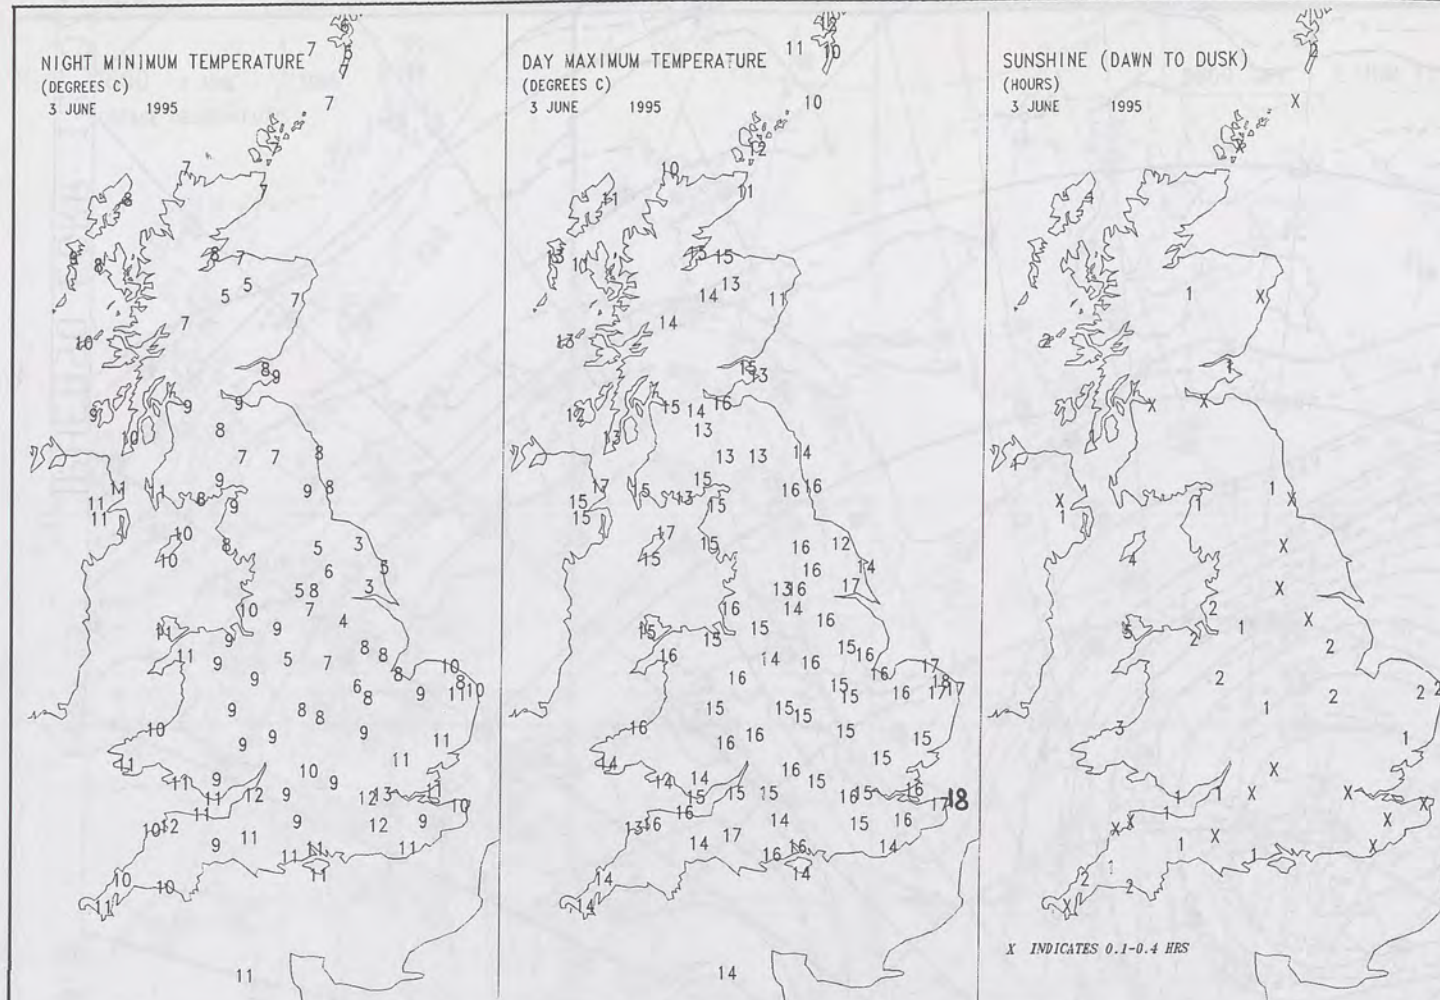 NIGHT MINIMUM TEMPERATURE
(DEGREES C)
3 JUNE 1995
7
6
5
7
7
7
7
8
8
7
8
5
5
7
7
10
8
9
9
9
9
10
8
7
7
8
9
9
8
11
11
11
8
9
10
10
8
5
3
5
6
5
8
3
10
7
4
11
9
9
11
9
5
7
8
8
8
10
9
6
8
9
8
11
10
9
8
8
10
9
9
9
11
11
11
9
11
10
9
11
12
9
12
13
11
10
11
10
12
9
12
9
9
11
11
11
11
11
10
10
11
11
DAY MAXIMUM TEMPERATURE
(DEGREES C)
3 JUNE 1995
11
12
10
10
12
10
11
11
13
10
15
15
13
14
11
14
13
15
13
12
15
14
16
13
13
13
13
14
15
16
16
17
15
15
13
15
17
15
15
16
12
14
16
13
16
17
16
14
16
15
15
15
16
14
16
15
16
16
17
16
15
15
16
18
17
17
15
15
15
16
16
16
15
15
14
14
14
16
15
15
15
15
15
16
15
16
17
18
16
13
16
14
17
14
15
16
16
16
14
14
14
14
14
SUNSHINE (DAWN TO DUSK)
(HOURS)
3 JUNE 1995
2
X
X
4
1
X
2
1
X
X
1
X
1
1
1
X
X
4
X
2
1
X
5
2
2
2
2
2
2
1
3
1
X
1
1
X
X
X
1
X
X
X
1
X
1
X
1
2
2
X
X INDICATES 0.1-0.4 HRS